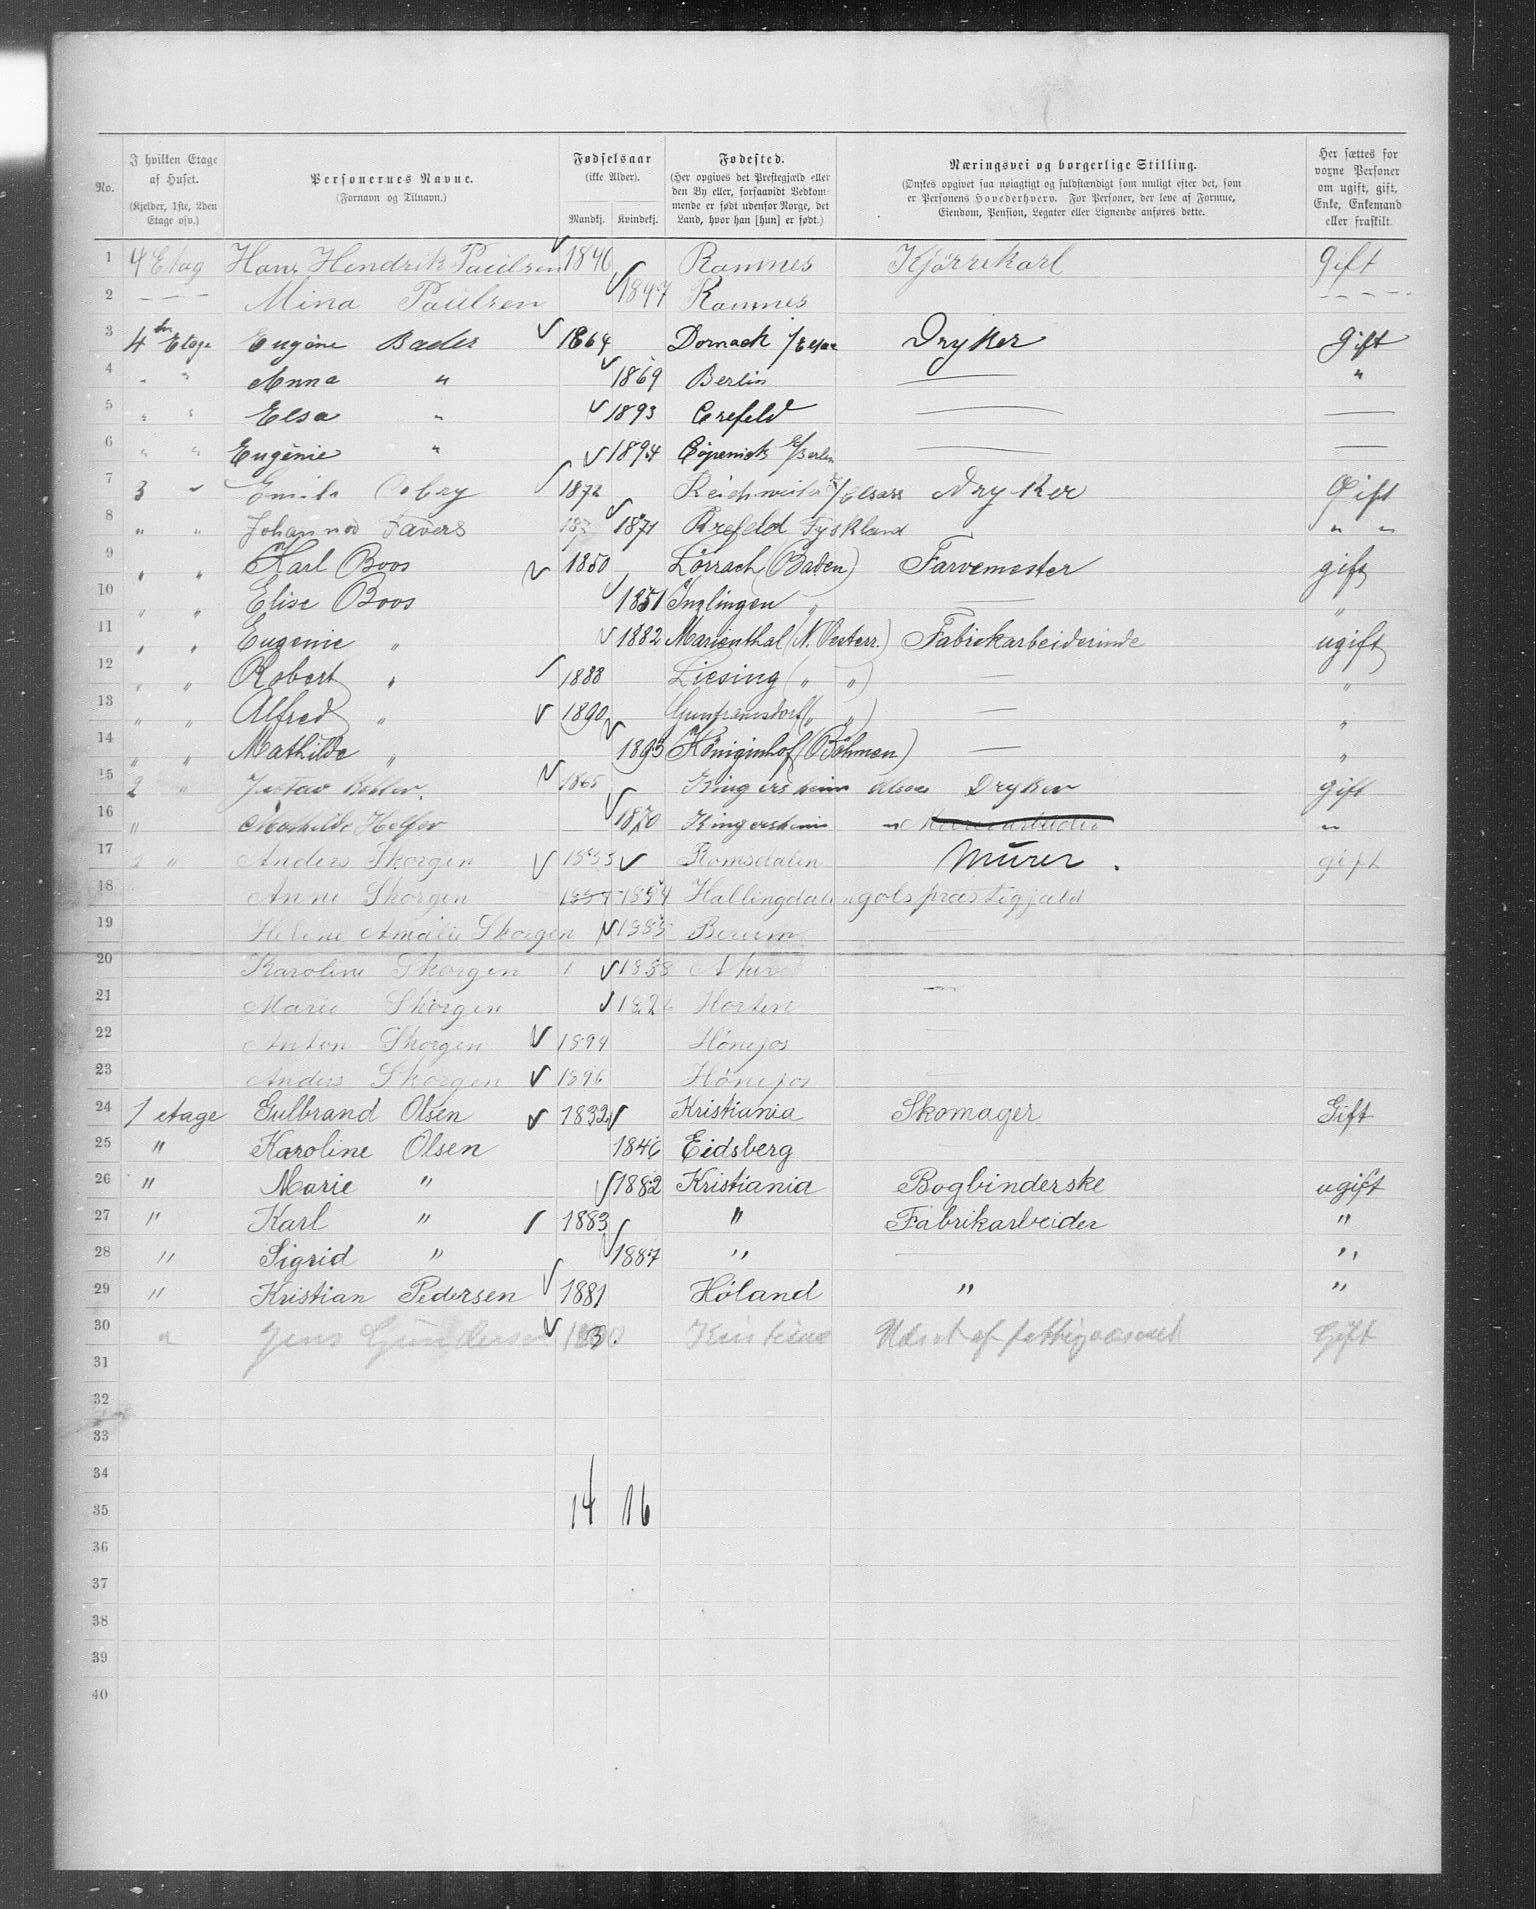 No.
I hvilken Etage af Huset. (Kjelder, 1ste, 2den Etage osv.)
Personernes Navne. (Fornavn og Tilnavn.)
Fødselsaar (ikke Alder). Mandkj. Kvindekj.
Fødested. (Her opgives det Prestegjæld eller den By eller, forsaavidt Vedkommende er født udenfor Norge, det Land, hvor han [hun] er født.)
Næringsvei og borgerlige Stilling. (Ønskes opgivet saa nøiagtigt og fuldstændigt som muligt efter det, som er Personens Hovederhverv. For Personer, der leve af Formue, Eiendom, Pension, Legater eller Lignende anføres dette.
Her sættes for voxne Personer om ugift, gift, Enke, Enkemand eller fraskilt.
1 4 Etag Hans Hendrik Paulsen 1846 Ramnes Kjørrekarl gift
2 - - - Mina Paulsen 1847 Ramnes - - - -
3 4 de Etage Eugène Bader 1864 Dornach /Elsas Dryker gift
4 " " Anna " 1869 Berlin — "
5 " " Elsa " 1893 Crefeld — —
6 " " Eugènie " 1894 Cöpenick b/Berlin — —
7 3 " Emile 1872 /Elsass Dryker Gift
8 " " 1871 Krefeld Tyskland " "
9 " " Karl Boos 1850 Lörrach (Baden) Farvemester gift
10 " " Elise Boos 1851 Inzlingen " — "
11 " " Eugenie " 1882 Marienthal (N. Oesterr.) Fabrikarbeiderinde ugift
12 " " Robert " 1888 Liesing ( " " ) — "
13 " " Alfred " 1890 Guntramsdorf ( " " ) — "
14 " " Mathilde " 1893 Königinhof (Böhmen) — "
15 2 " Gustav 1865 Kingersheim Alsace Dryker gift
16 " Mathilde Helfer 1870 Kingersheim " "
17 2 " Anders Skorgen 1853 Romsdalen Murer . gift
18 Anne Skorgen 1854 Hallingdalen gols præstegjæld
19 Helene Amalie Skorgen 1885 Berum —
20 Karoline Skorgen 1888 Aker
21 Marie Skorgen Horten —
22 Anton Skorgen 1894 Hønefos —
23 Anders Skorgen 1896 Hønefos —
24 1 etage Gulbrand Olsen 1832 Kristiania Skomager Gift
25 " Karoline Olsen 1846 Eidsberg
26 " Marie " 1882 Kristiania Bogbinderske ugift
27 " Karl " 1883 " Fabrikarbeider "
28 " Sigrid " 1887 " — "
29 " Kristian Pedersen 1881 Høland " "
30 " Jens Gundersen af fattigvæsenet Gift
31
32
33
34
35 14 16
36
37
38
39
40